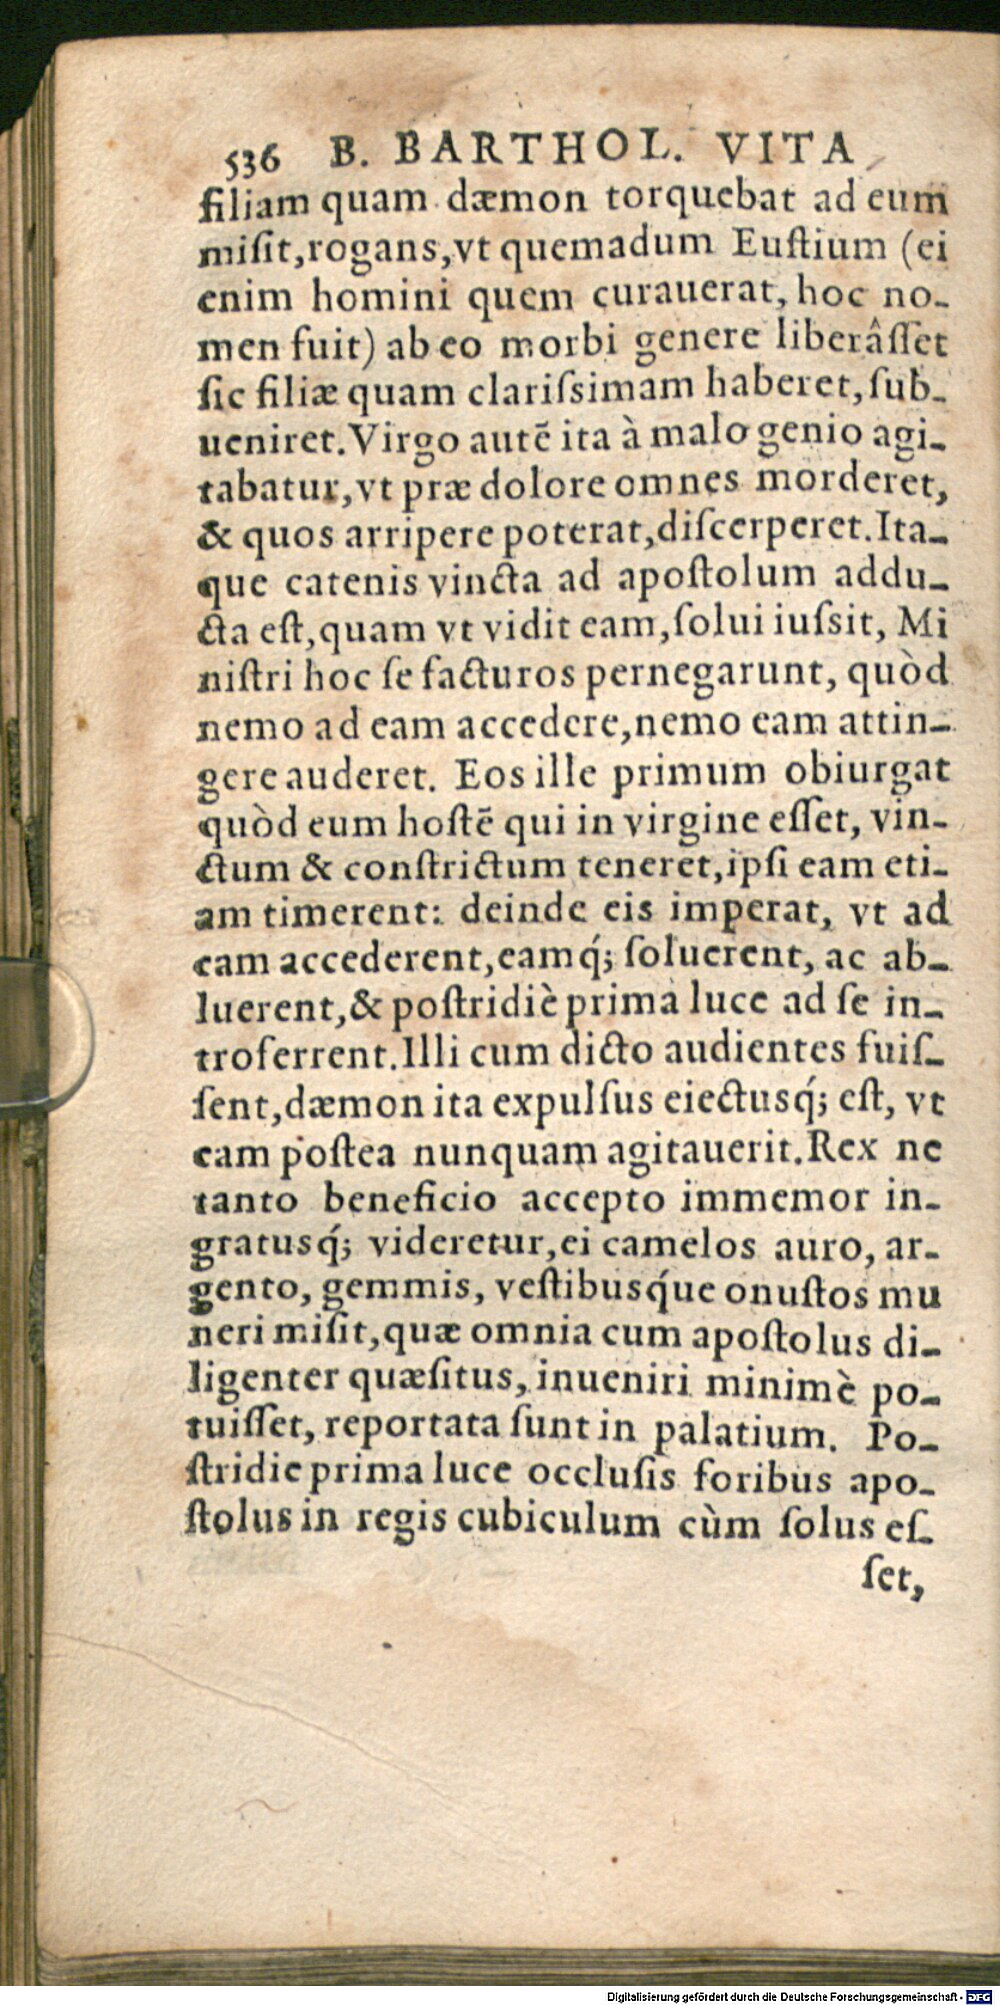 536 B. BARTHOL. VITA
filiam quam dæmon torquebat ad eum
miſit,rogans,vt quemadum Euſtium (ei
enim homini quem curauerat, hoc no-
men fuit) ab eo morbi genere liberâſſet
ſic filiæ quam clariſsimam haberet,ſub-
ueniret.Virgo autē ita à malo genio agi-
tabatur,vt præ dolore omnes morderet,
& quos arripere poterat,diſcerperet.Ita-
que catenis vincta ad apoſtolum addu-
cta eſt,quam vt vidit eam,ſolui iuſsit, Mi
niſtri hoc ſe facturos pernegarunt, quòd
nemo ad eam accedere,nemo eam attin-
gere auderet. Eos ille primum obiurgat
quòd eum hoſtē qui in virgine eſſet, vin-
ctum & conſtrictum teneret,ipſi eam eti-
am timerent: deinde eis imperat, vt ad
eam accederent,eamq́; ſoluerent, ac ab-
luerent,& poſtridiè prima luce ad ſe in-
troferrent.Illi cum dicto audientes fuiſ-
ſent,dæmon ita expulſus eiectusq́; eſt, vt
eam poſtea nunquam agitauerit.Rex ne
tanto beneficio accepto immemor in-
gratusq́; videretur,ei camelos auro, ar-
gento, gemmis, veſtibusq́ue onuſtos mu
neri miſit,quæ omnia cum apoſtolus di-
ligenter quæſitus, inueniri minimè po-
tuiſſet, reportata ſunt in palatium. Po-
ſtridie prima luce occluſis foribus apo-
ſtolus in regis cubiculum cùm ſolus eſ-
ſet,
Digitalisierung gefördert durch die Deutsche Forschungsgemeinschaft - DFG